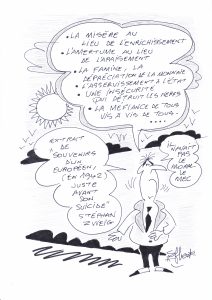 • LA MISÈRE AU
LIEU DE L'ENRICHISSEMENT
• L'AMERTUME AU LIEU
DE L'APAISEMENT
• LA FAMINE, LA
DÉPRÉCIATION DE LA MONNAIE
• L'ASSERVISSEMENT À L'ÉTAT
• UNE INSÉCURITÉ
QUI DÉTRUIT LES NERFS
• LA MÉFIANCE DE TOUS
VIS À VIS DE TOUS
....
EXTRAIT DE
SOUVENIRS
D'UN
EUROPÉEN,
(EN 1942)
JUSTE
AVANT
SON
SUICIDE"
STEPHAN
ZWEIG
PAS
LE MEC